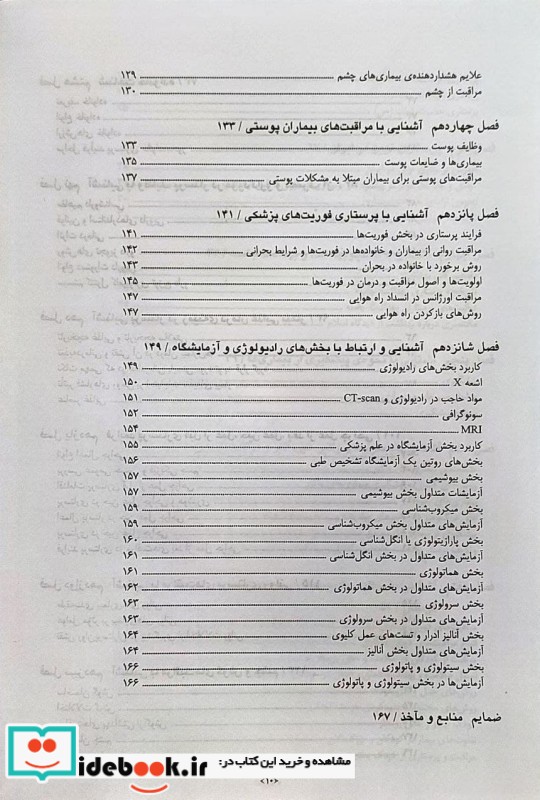 علایم هشداردهنده‌ی بیماری‌های چشم ... ۱۲۹
مراقبت از چشم ... ۱۳۰
فصل چهاردهم آشنایی با مراقبت‌های بیماران پوستی / ۱۳۳
وظایف پوست ... ۱۳۳
بیماری‌ها و ضایعات پوست ... ۱۳۵
مراقبت‌های پوستی برای بیماران مبتلا به مشکلات پوستی ... ۱۳۷
فصل پانزدهم آشنایی با پرستاری فوریت‌های پزشکی / ۱۴۱
فرایند پرستاری در بخش فوریت‌ها ... ۱۴۱
مراقبت روانی از بیماران و خانواده‌ها در فوریت‌ها و شرایط بحرانی ... ۱۴۲
روش برخورد با خانواده در بحران ... ۱۴۳
اولویت‌ها و اصول مراقبت و درمان در فوریت‌ها ... ۱۴۵
مراقبت اورژانس در انسداد راه هوایی ... ۱۴۷
روش‌های بازکردن راه هوایی ... ۱۴۷
فصل شانزدهم آشنایی و ارتباط با بخش‌های رادیولوژی و آزمایشگاه / ۱۴۹
کاربرد بخش‌های رادیولوژی ... ۱۴۹
اشعه X ... ۱۵۰
مواد حاجب در رادیولوژی و CT-scan ... ۱۵۱
سونوگرافی ... ۱۵۲
MRI ... ۱۵۴
کاربرد بخش آزمایشگاه در علم پزشکی ... ۱۵۵
بخش‌های روتین یک آزمایشگاه تشخیص طبی ... ۱۵۶
بخش بیوشیمی ... ۱۵۷
آزمایشات متداول بخش بیوشیمی ... ۱۵۷
بخش میکروب‌شناسی ... ۱۵۹
آزمایش‌های متداول بخش میکروب‌شناسی ... ۱۵۹
بخش پارازیتولوژی یا انگل‌شناسی ... ۱۶۰
آزمایش‌های متداول در بخش انگل‌شناسی ... ۱۶۱
بخش هماتولوژی ... ۱۶۱
آزمایش‌های متداول در بخش هماتولوژی ... ۱۶۲
بخش سرولوژی ... ۱۶۳
آزمایش‌های متداول در بخش سرولوژی ... ۱۶۳
بخش آنالیز ادرار و تست‌های عمل کلیوی ... ۱۶۴
آزمایش‌های متداول بخش آنالیز ... ۱۶۴
بخش سیتولوژی و پاتولوژی ... ۱۶۶
آزمایش‌ها در بخش سیتولوژی و پاتولوژی ... ۱۶۶
ضمایم منابع و مآخذ / ۱۶۷
مشاهده و خرید این کتاب در:
idebook.ir
<۱۰>